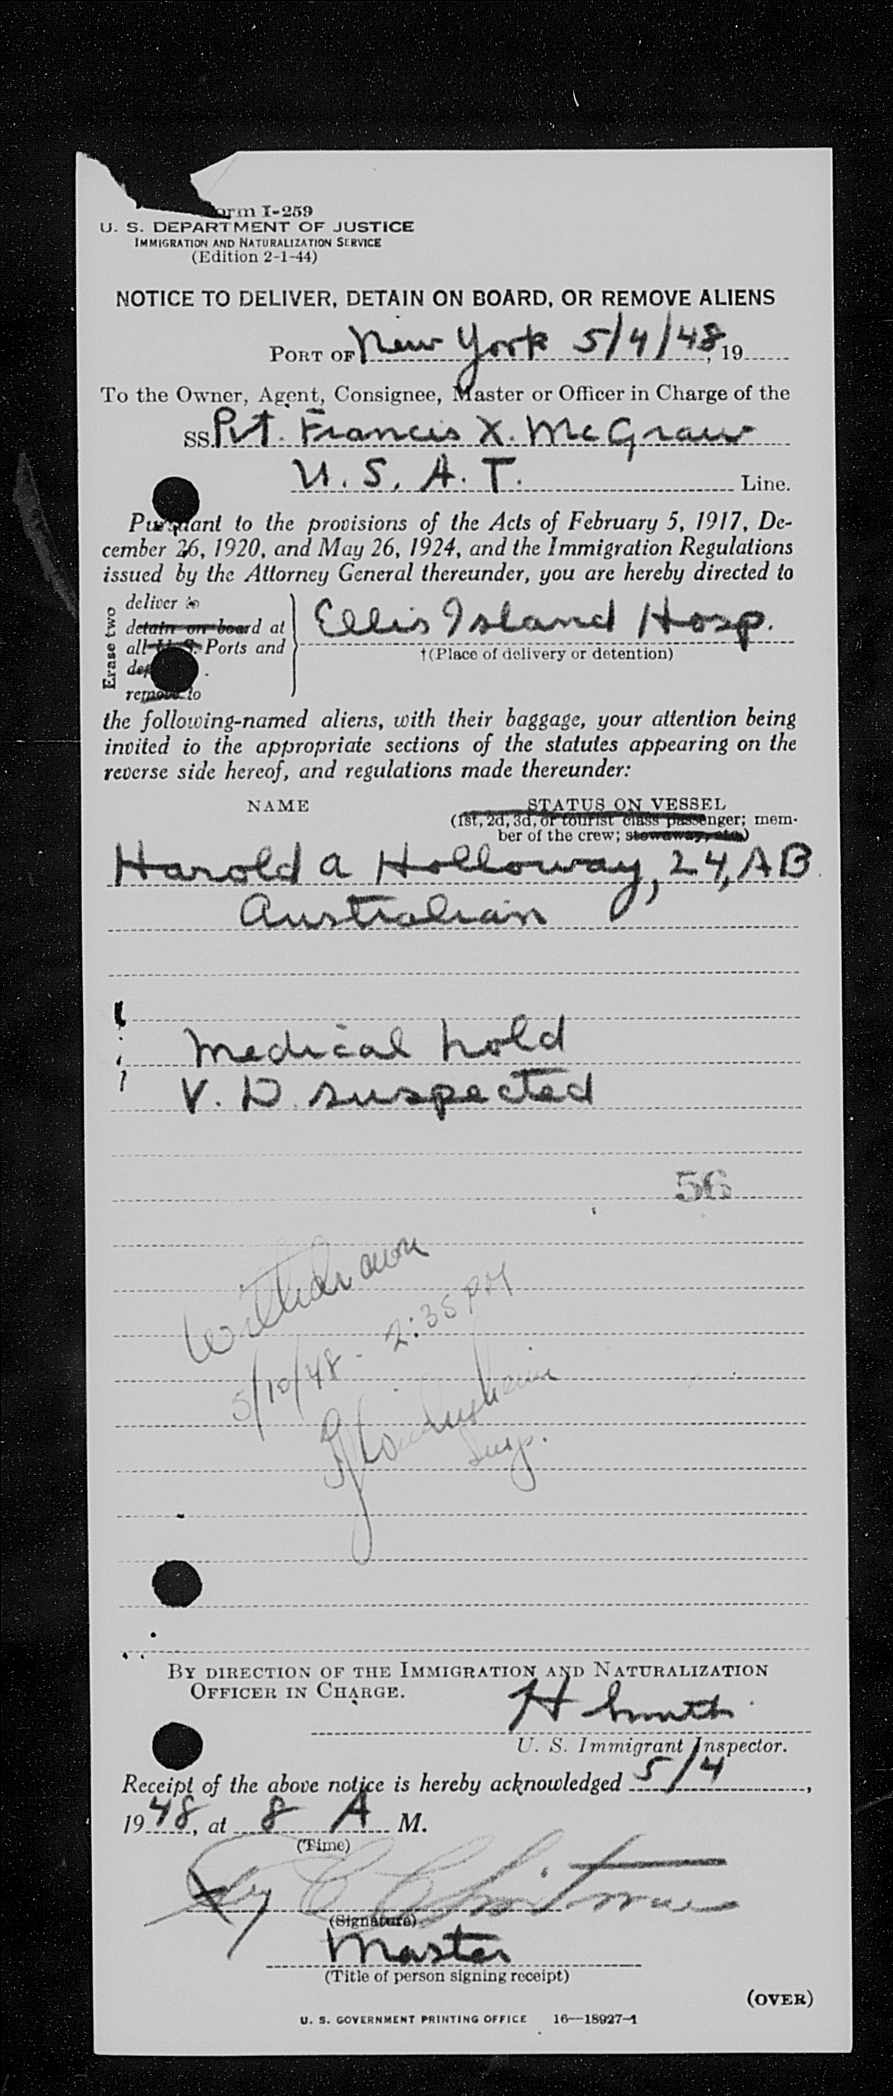 Form I-259
U. S. DEPARTMENT OF JUSTICE
IMMIGRATION AND NATURALIZATION SERVICE
(Edition 2-1-44)
NOTICE TO DELIVER, DETAIN ON BOARD, OR REMOVE ALIENS
PORT OF New York 5/4/48, 19
To the Owner, Agent, Consignee, Master or Officer in Charge of the
SS Pvt. Francis X. McGraw
U. S. A. T. Line.
Pursuant to the provisions of the Acts of February 5, 1917, De-
cember 26, 1920, and May 26, 1924, and the Immigration Regulations
issued by the Attorney General thereunder, you are hereby directed to
Erase two
deliver to
detain on board at
all U. S. Ports and
remove to
Ellis Island Hosp.
†(Place of delivery or detention)
the following-named aliens, with their baggage, your attention being
invited to the appropriate sections of the statutes appearing on the
reverse side hereof, and regulations made thereunder:
NAME STATUS ON VESSEL
(1st, 2d, 3d, or tourist class passenger; mem-
ber of the crew; stowaway, etc.)
Harold A Holloway, 24, AB
Australian
Medical hold
V. D. suspected
56
Withdrawn
5/10/48 - 2:35 PM
Insp.
BY DIRECTION OF THE IMMIGRATION AND NATURALIZATION
OFFICER IN CHARGE.
H Smith
U. S. Immigrant Inspector.
Receipt of the above notice is hereby acknowledged 5/4,
1948, at 8 A M.
(Time)
(Signature)
Master
(Title of person signing receipt)
(OVER)
U. S. GOVERNMENT PRINTING OFFICE 16—18927-1